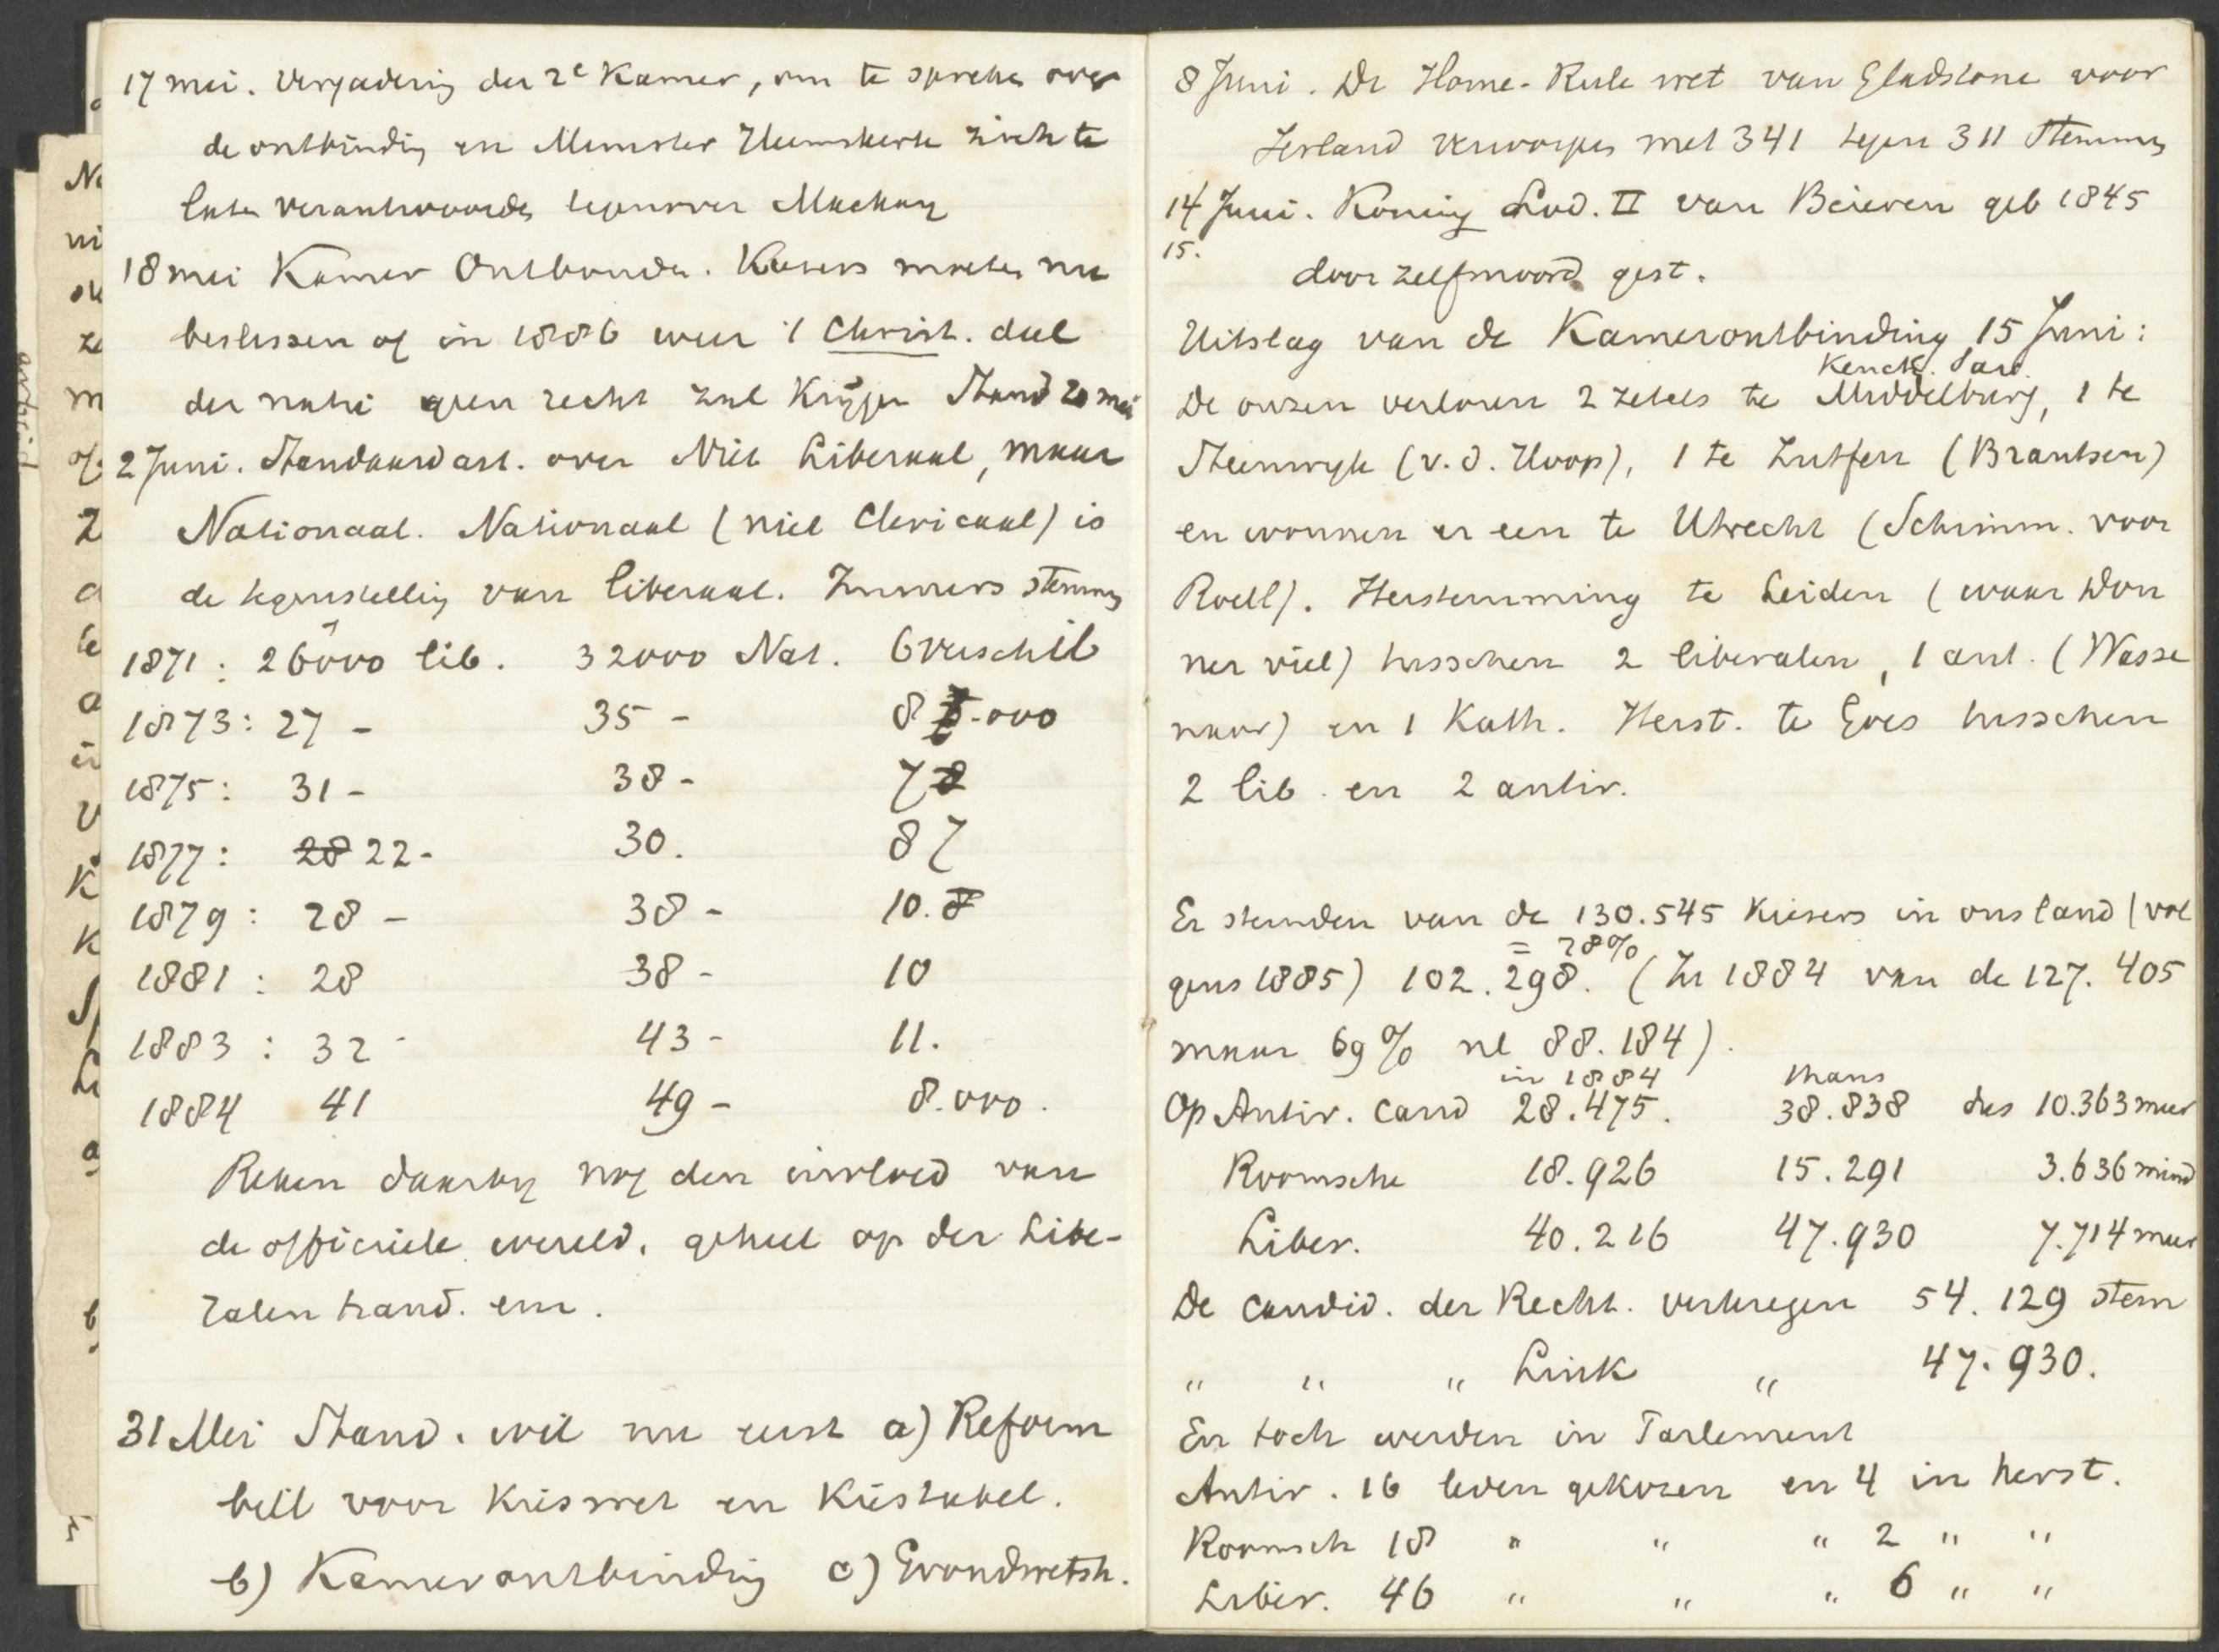 17 mei. Vergadering der 2e Kamer, om te spreken over
de ontbinding en Minister Heemskerk zich te
laten verantwoorden tegenover Mackay
18 mei Kamer Ontbonden. Kiezers moeten nu
beslissen of in 1886 weer 't Christ. deel
der natie geen recht zal krijgen Stand 20 mei
2 Juni. Standaard art. over Niet Liberaal, maar
Nationaal. Nationaal (niet Clericaal) is
de tegenstelling van liberaal. Immers stemmen
1871: 26000 lib. 32000 Nat. 6 verschil
1873: 27 - 35 - 8.000
1875: 31 - 38 - 7
1877: 28 22 - 30. 8
1879: 28 - 38 - 10.
1881: 28 38 - 10
1883: 32 - 43 - 11.
1884 41 49 - 8.000.
Reken daarbij nog den invloed van
de officieele wereld, geheel op der Libe-
ralen hand. enz.
31 Mei Stand. wil nu eerst a) Reform
bill voor Kieswet en Kiestabel.
b) Kamerontbinding c) Grondwetsh.
8 Juni. De Home-Rule wet van Gladstone voor
Ierland verworpen met 341 tegen 311 stemmen
14 Juni. Koning Lod. II van Beieren geb 1845
15.
door zelfmoord gest.
Uitslag van de Kamerontbinding 15 Juni:
Keuch. Sav.
De onzen verloren 2 zetels te Middelburg, 1 te
Steenwijk (v. d. Hoop), 1 te Zutfen (Brantsen)
en wonnen er een te Utrecht (Schimm. voor
Roell). Herstemming te Leiden (waar Don
ner viel) tusschen 2 liberalen, 1 ant. (Wasse
naar) en 1 Kath. Herst. te Goes tusschen
2 lib. en 2 antir.
Er stemden van de 130.545 Kiezers in ons land (vol
= 78%
gens 1885) 102.298. (In 1884 van de 127.405
maar 69% nl 88.184).
in 1884 thans
Op Antir. cand 28.475. 38.838 dus 10.363 meer
Roomsche 18.926 15.291 3.636 mind
Liber. 40.216 47.930 7.714 meer
De candid. der Recht. verkregen 54.129 stem
" " " Link " 47.930.
En toch werden in Parlement
Antir. 16 leden gekozen en 4 in herst.
Roomsch 18 " " " 2 " "
Liber. 46 " " " 6 " "